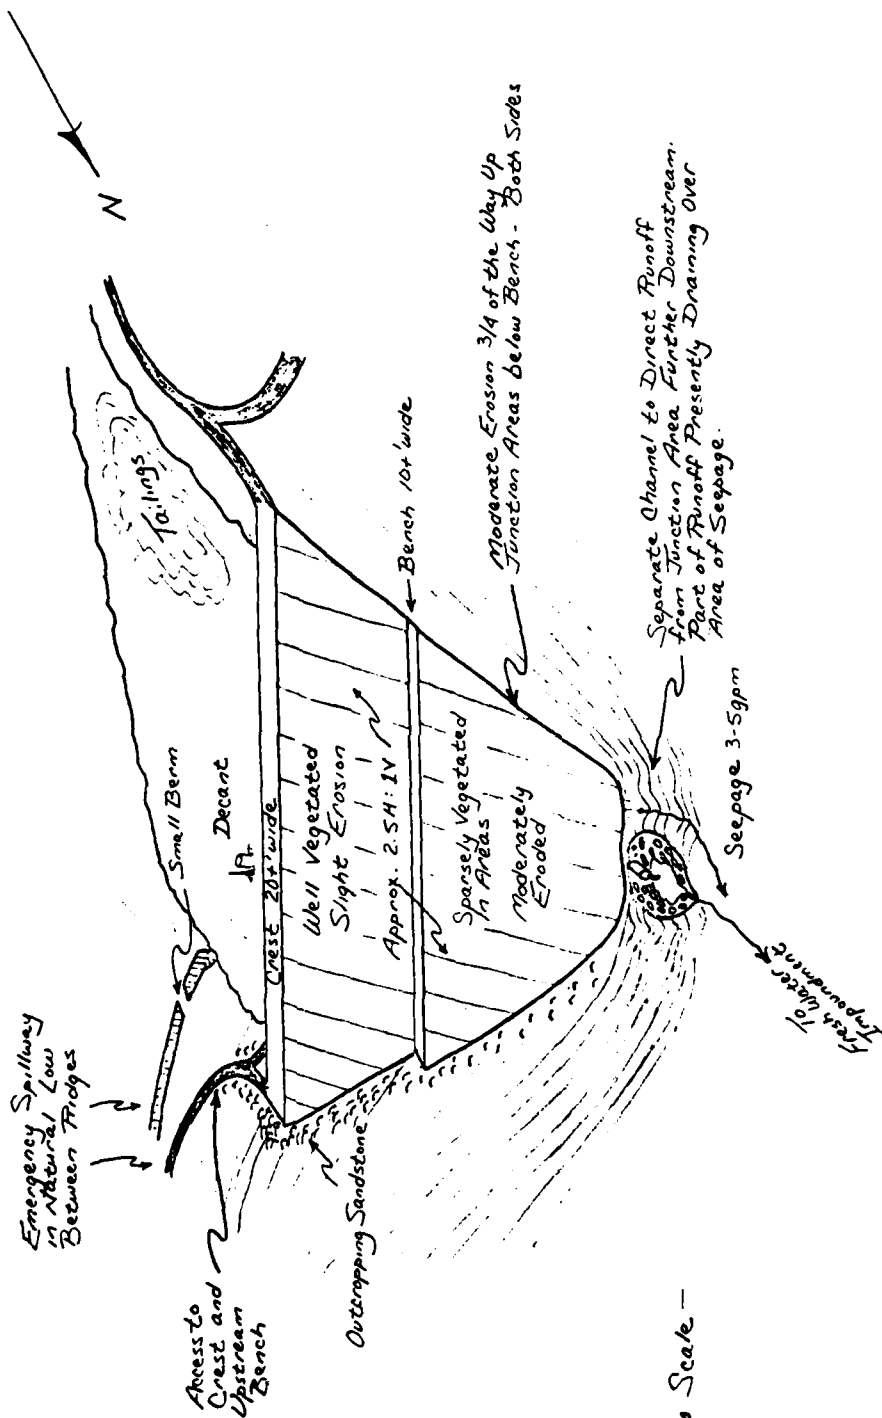 N
Emergency Spillway
in Natural Low
Between Ridges
Small Berm
Tailings
Decant
Access to
Crest and
Upstream
Bench
Crest 20±' wide
Well Vegetated
Slight Erosion
Approx. 2.5H:1V
Bench 10±' wide
Outcropping Sandstone
Sparsely Vegetated
In Areas
Moderately
Eroded
Moderate Erosion 3/4 of the Way Up
Junction Areas below Bench - Both Sides
Separate Channel to Direct Runoff
from Junction Area Further Downstream.
Part of Runoff Presently Draining Over
Area of Seepage.
Seepage 3-5gpm
To
Fresh Water
Impoundment
Scale —